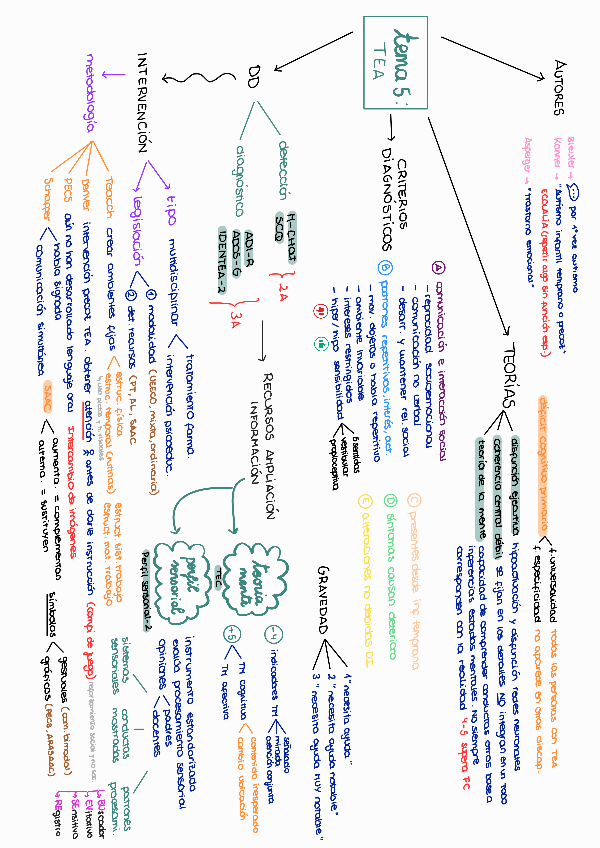 tema 5:
TEA
AUTORES
Bleuler → por 1ª vez autismo
Kanner → "Autismo infantil temprano o precoz"
ECOLALIA (repetir algo sin función esp.)
Asperger → "trastorno emocional"
TEORÍAS
déficit cognitivo primario
↑ universalidad todas las personas con TEA
↑ especificidad no aparece en otras discap.
disfunción ejecutiva hipoactivación y disfunción redes neuronales
coherencia central débil se fijan en los detalles NO integran en un todo
teoría de la mente capacidad de comprender conductas otras base a
inferencias estados mentales. No siempre
corresponden con la realidad 4-5 supera FC
CRITERIOS
DIAGNÓSTICOS
A comunicación e interacción social
- reprocidad socioemocional
- comunicación no verbal
- desarr. y mantener rel. social
B patrones repetitivos, interés, act.
- mov. objetos o habla repetitivo
- ambiente invariable
- intereses restringidos
- hiper / hipo sensibilidad
5 sentidos
vestibular
propioceptiva
C presentes desde inf. temprana
D síntomas causan deterioro
E alteraciones no debidas DI
GRAVEDAD
1 "necesita ayuda"
2 "necesita ayuda notable"
3 "necesita ayuda MUY notable"
DD
detección
M-CHAT
SCQ
2A
diagnóstico
ADI-R
ADOS-G
IDENTEA-2
3A
RECURSOS AMPLIACIÓN
INFORMACIÓN
teoría
mente
TEC
-4 indicadores TM
señalado
mirada
atención conjunta
+5
TM cognitiva
contenido inesperado
cambio ubicación
TM afectiva
perfil
sensorial
Perfil sensorial-2
instrumento estandarizado
evalúa procesamiento sensorial
opiniones
padres
docentes
sistemas
sensoriales
conductas
mostradas
patrones
procesami.
BUscador
EVitativo
SEnsitivo
REgistro
INTERVENCIÓN
tipo multidisciplinar
tratamiento farma.
intervención psicoeduc.
legislación
1 modalidad (UEECO, mixta, ordinaria)
2 det. recursos (PT, AL, SAAC
metodología
Teacch crear ambientes fijos
estruc. física
estruc. temporal (rutinas)
estruct. sist. trabajo
estruct. mat. trabajo
Denver intervención precoz TEA. obtener atención antes de darle instrucción (compi de juego)
PECS aún no han desarrollado lenguaje oral Intercambio de imágenes
Schaeffer
habla signada
comunicación simultánea
SAAC
aumenta. = complementan
alterna. = sustituyen
símbolos
gestuales (com. bimodal)
gráficos (PECS, ARASAAC)